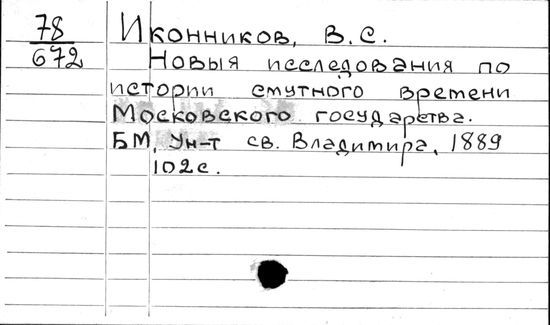 78
672
Иконников, В.С.
Новыя исследования по
истории смутного времени
Московского государства.
БМ, Ун-т св. Владимира, 1889
102с.